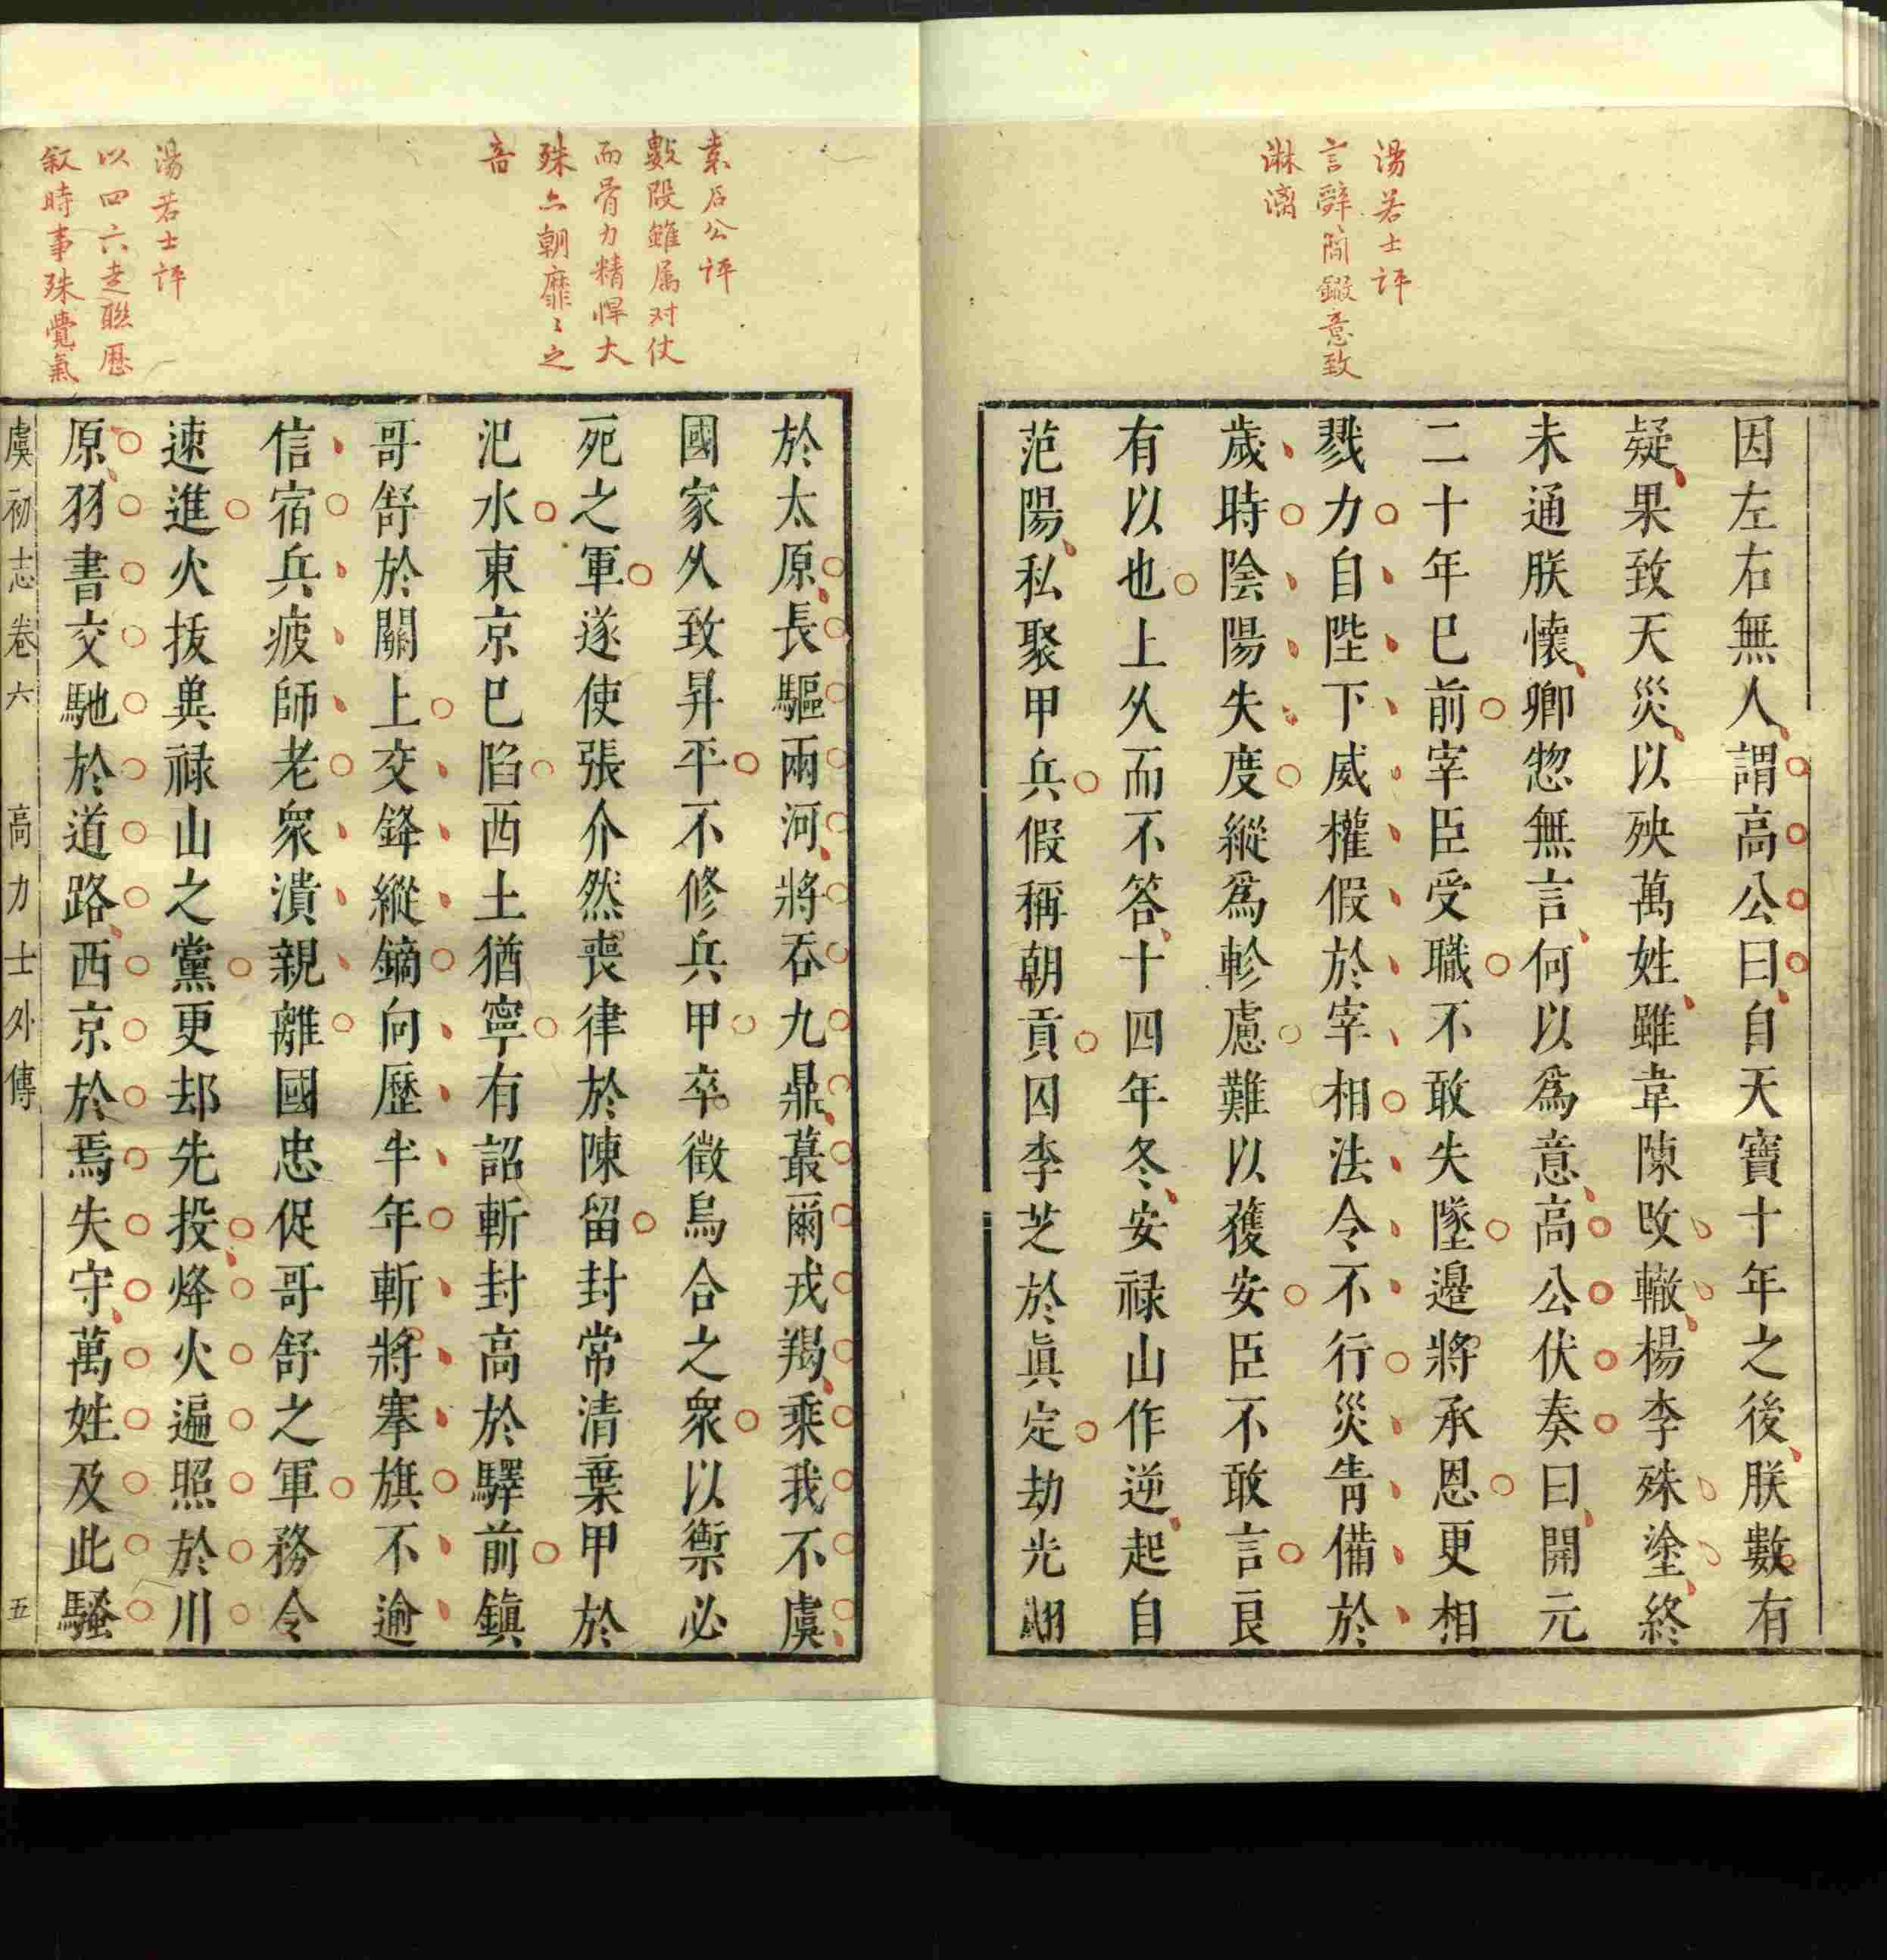 湯若士評
言辭簡鍛意致
淋漓
因左右無人謂高公曰自天寶十年之後朕數有
疑果致天災以殃萬姓雖韋陳改轍楊李殊塗終
未通朕懷卿惣無言何以為意高公伏奏曰開元
二十年巳前宰臣受職不敢失墜邊將承恩更相
戮力自陛下威權假於宰相法令不行災眚備於
歲時陰陽失度縱為軫慮難以獲安臣不敢言良
有以也上久而不答十四年冬安祿山作逆起自
范陽私聚甲兵假稱朝貢囚李芝於眞定劫光翽
袁石公評
數段雖属对仗
而骨力精悍大
殊六朝靡〻之
音
湯若士評
以四六走聯歷
叙時事殊覺氣
於太原長驅兩河將吞九鼎蕞爾戎羯乘我不虞
國家久致昇平不修兵甲卒徵烏合之衆以禦必
死之軍遂使張介然喪律於陳留封常清棄甲於
汜水東京巳陷西土猶寧有詔斬封高於驛前鎮
哥舒於關上交鋒縱鏑向歷半年斬將搴旗不逾
信宿兵疲師老衆潰親離國忠促哥舒之軍務令
速進火拔與祿山之黨更却先投烽火遍照於川
原羽書交馳於道路西京於焉失守萬姓及此騷
虞初志卷六 高力士外傳 五